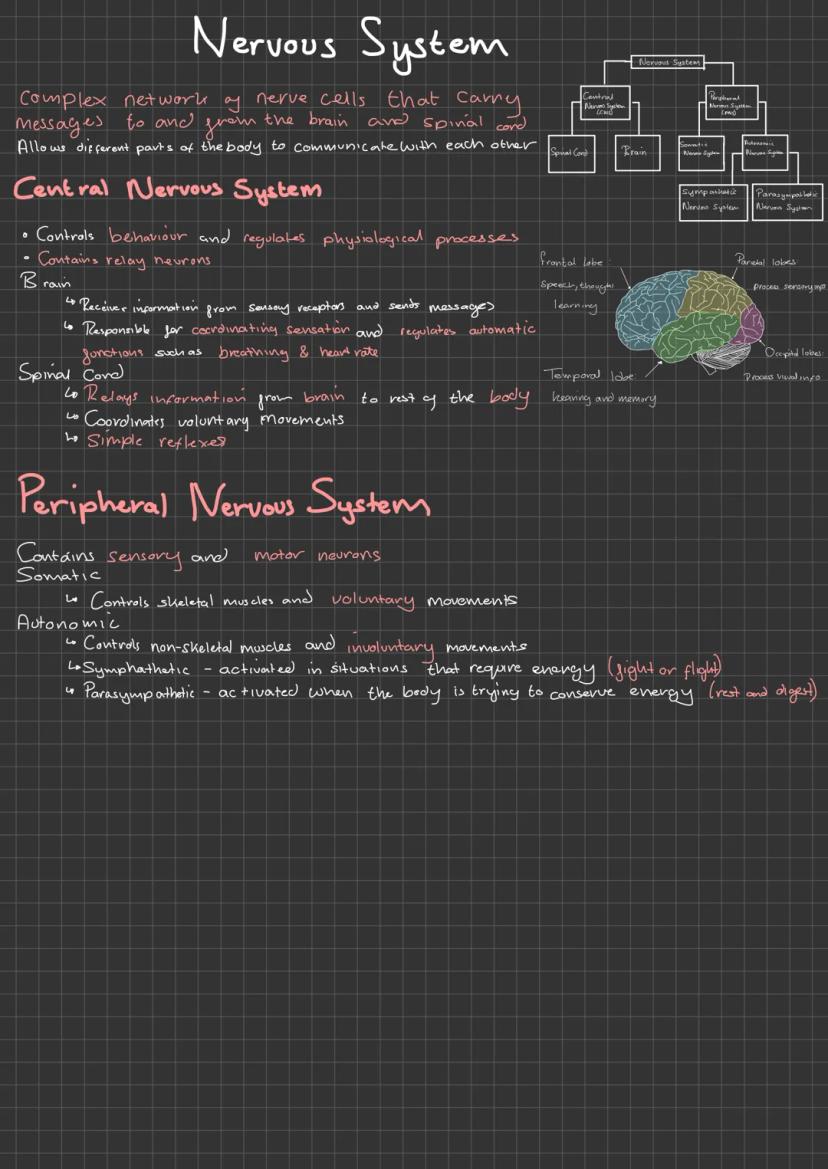 Nervous System
Complex network of nerve cells that carry
messages to and from the brain and spinal cord
Allows different parts of the body to communicate with each other
Nervous System
Central
Nervous System
(CNS)
Peripheral
Nervous System
(PNS)
Spinal Cord
Brain
Somatic
Nervous System
Autonomic
Nervous System
Sympathetic
Nervous System
Parasympathetic
Nervous System
Central Nervous System
• Controls behaviour and regulates physiological processes
• Contains relay neurons
Brain
↳ Receives information from sensory receptors and sends messages
↳ Responsible for coordinating sensation and regulates automatic
functions such as breathing & heart rate
Spinal Cord
↳ Relays information from brain to rest of the body
↳ Coordinates voluntary movements
↳ Simple reflexes
Frontal lobe:
speech, thought
learning
Parietal lobes:
process sensory
Occipital lobes:
Process visual info
Temporal lobe:
hearing and memory
Peripheral Nervous System
Contains sensory and motor neurons
Somatic
↳ Controls skeletal muscles and voluntary movements
Autonomic
↳ Controls non-skeletal muscles and involuntary movements
↳ Symphathetic - activated in situations that require energy (fight or flight)
↳ Parasympathetic - activated when the body is trying to conserve energy (rest and digest)